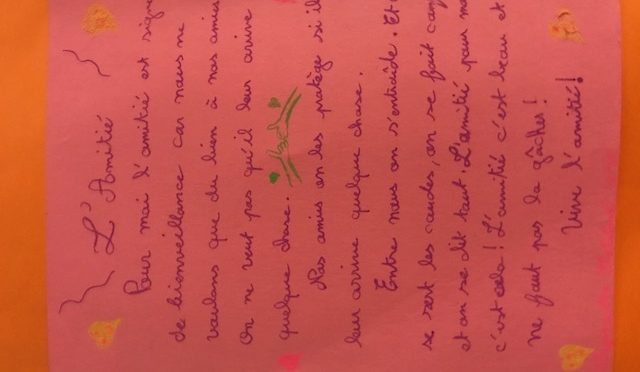 L'Amitié
Pour moi l'amitié est
de bienveillance car nous ne
voulons que du bien à nos amis
On ne veut pas qu'il leur arrive
quelque chose.
Nos amis on les protège si il
leur arrive quelque chose.
Entre nous on s'entraide. Et
se sert les coudes, on se fait
et on se dit tout. L'amitié pour
c'est cela ! L'amitié c'est beau et
ne faut pas la gâcher !
Vive l'amitié !